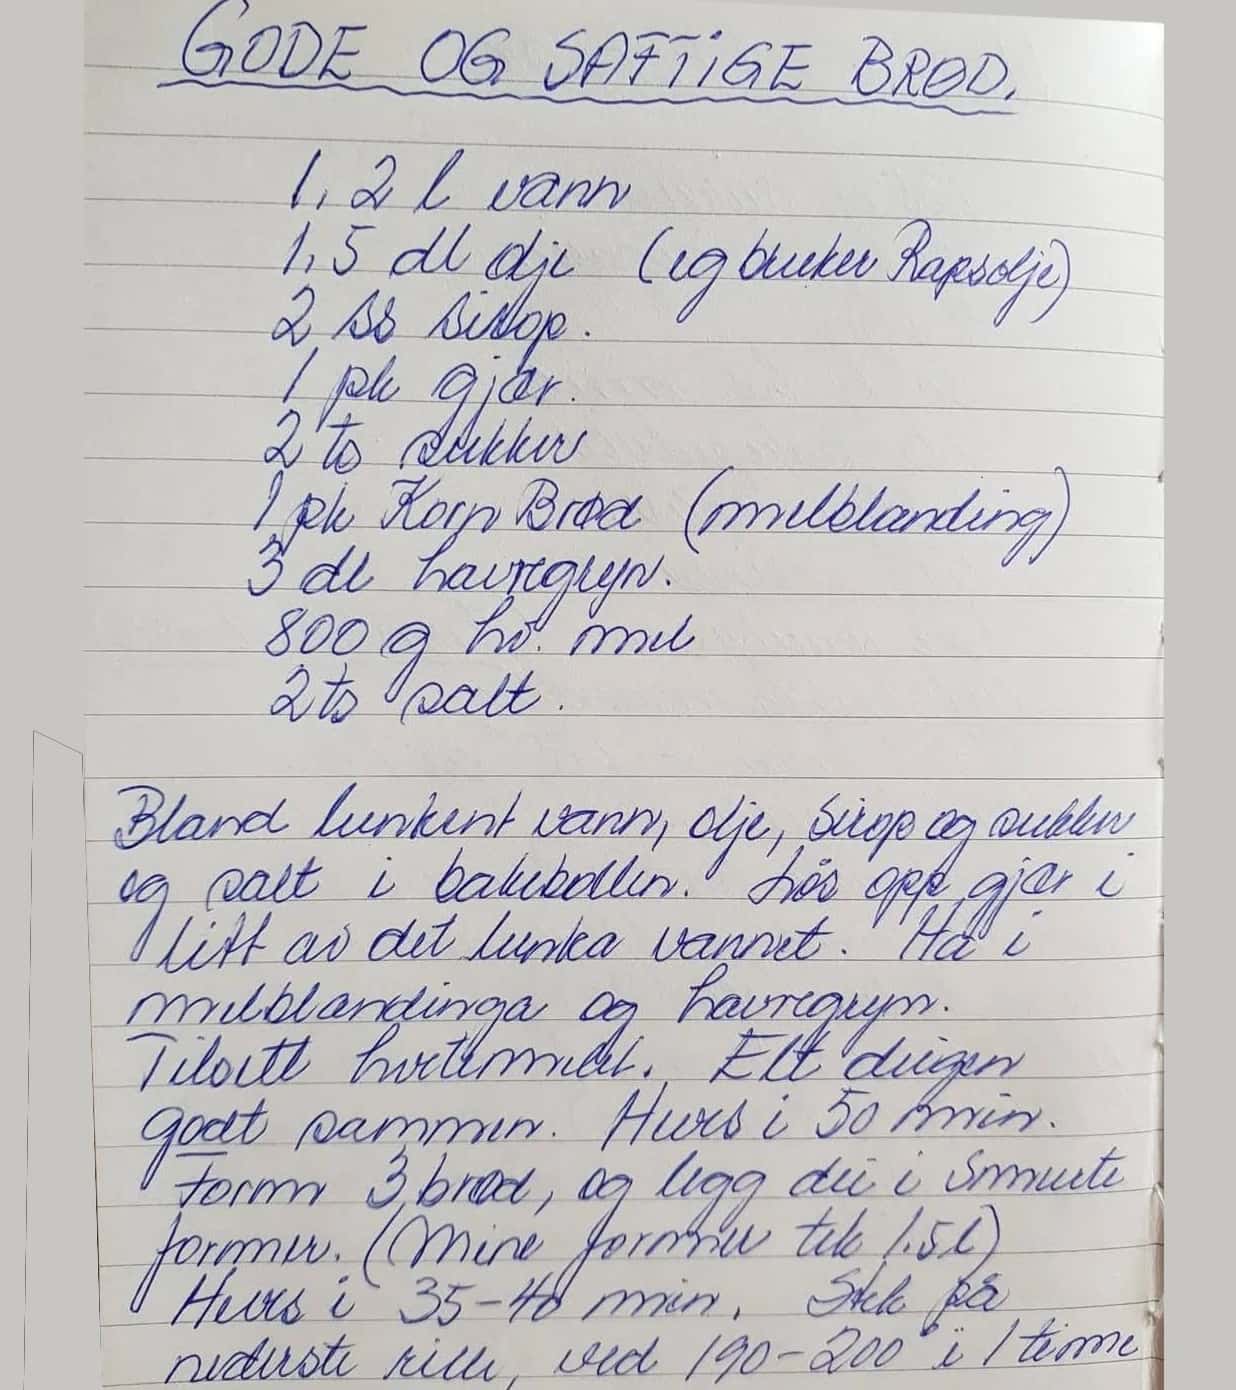 GODE OG SAFTIGE BRØD.
1,2 l vann
1,5 dl olje (eg bruker Rapsolje)
2 ss sirop.
1 pk gjær.
2 ts sukker
1 pk Korn Brød (melblanding)
3 dl havregryn.
800 g hv. mel
2 ts salt.
Bland lunkent vann, olje, sirop og sukker
og salt i bakebollen. Løs opp gjær i
litt av det lunka vannet. Ha i
melblandinga og havregryn.
Tilsett hvetemmel. Elt deigen
godt sammen. Hevs i 50 min.
Form 3 brød, og legg dei i smurte
former. (Mine former tek 1.5 l)
Hevs i 35-40 min. Stek på
nederste rille, ved 190-200° i 1 time